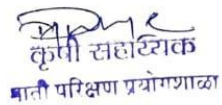 कृषी सहाय्यिक
माती परिक्षण प्रयोगशाळा